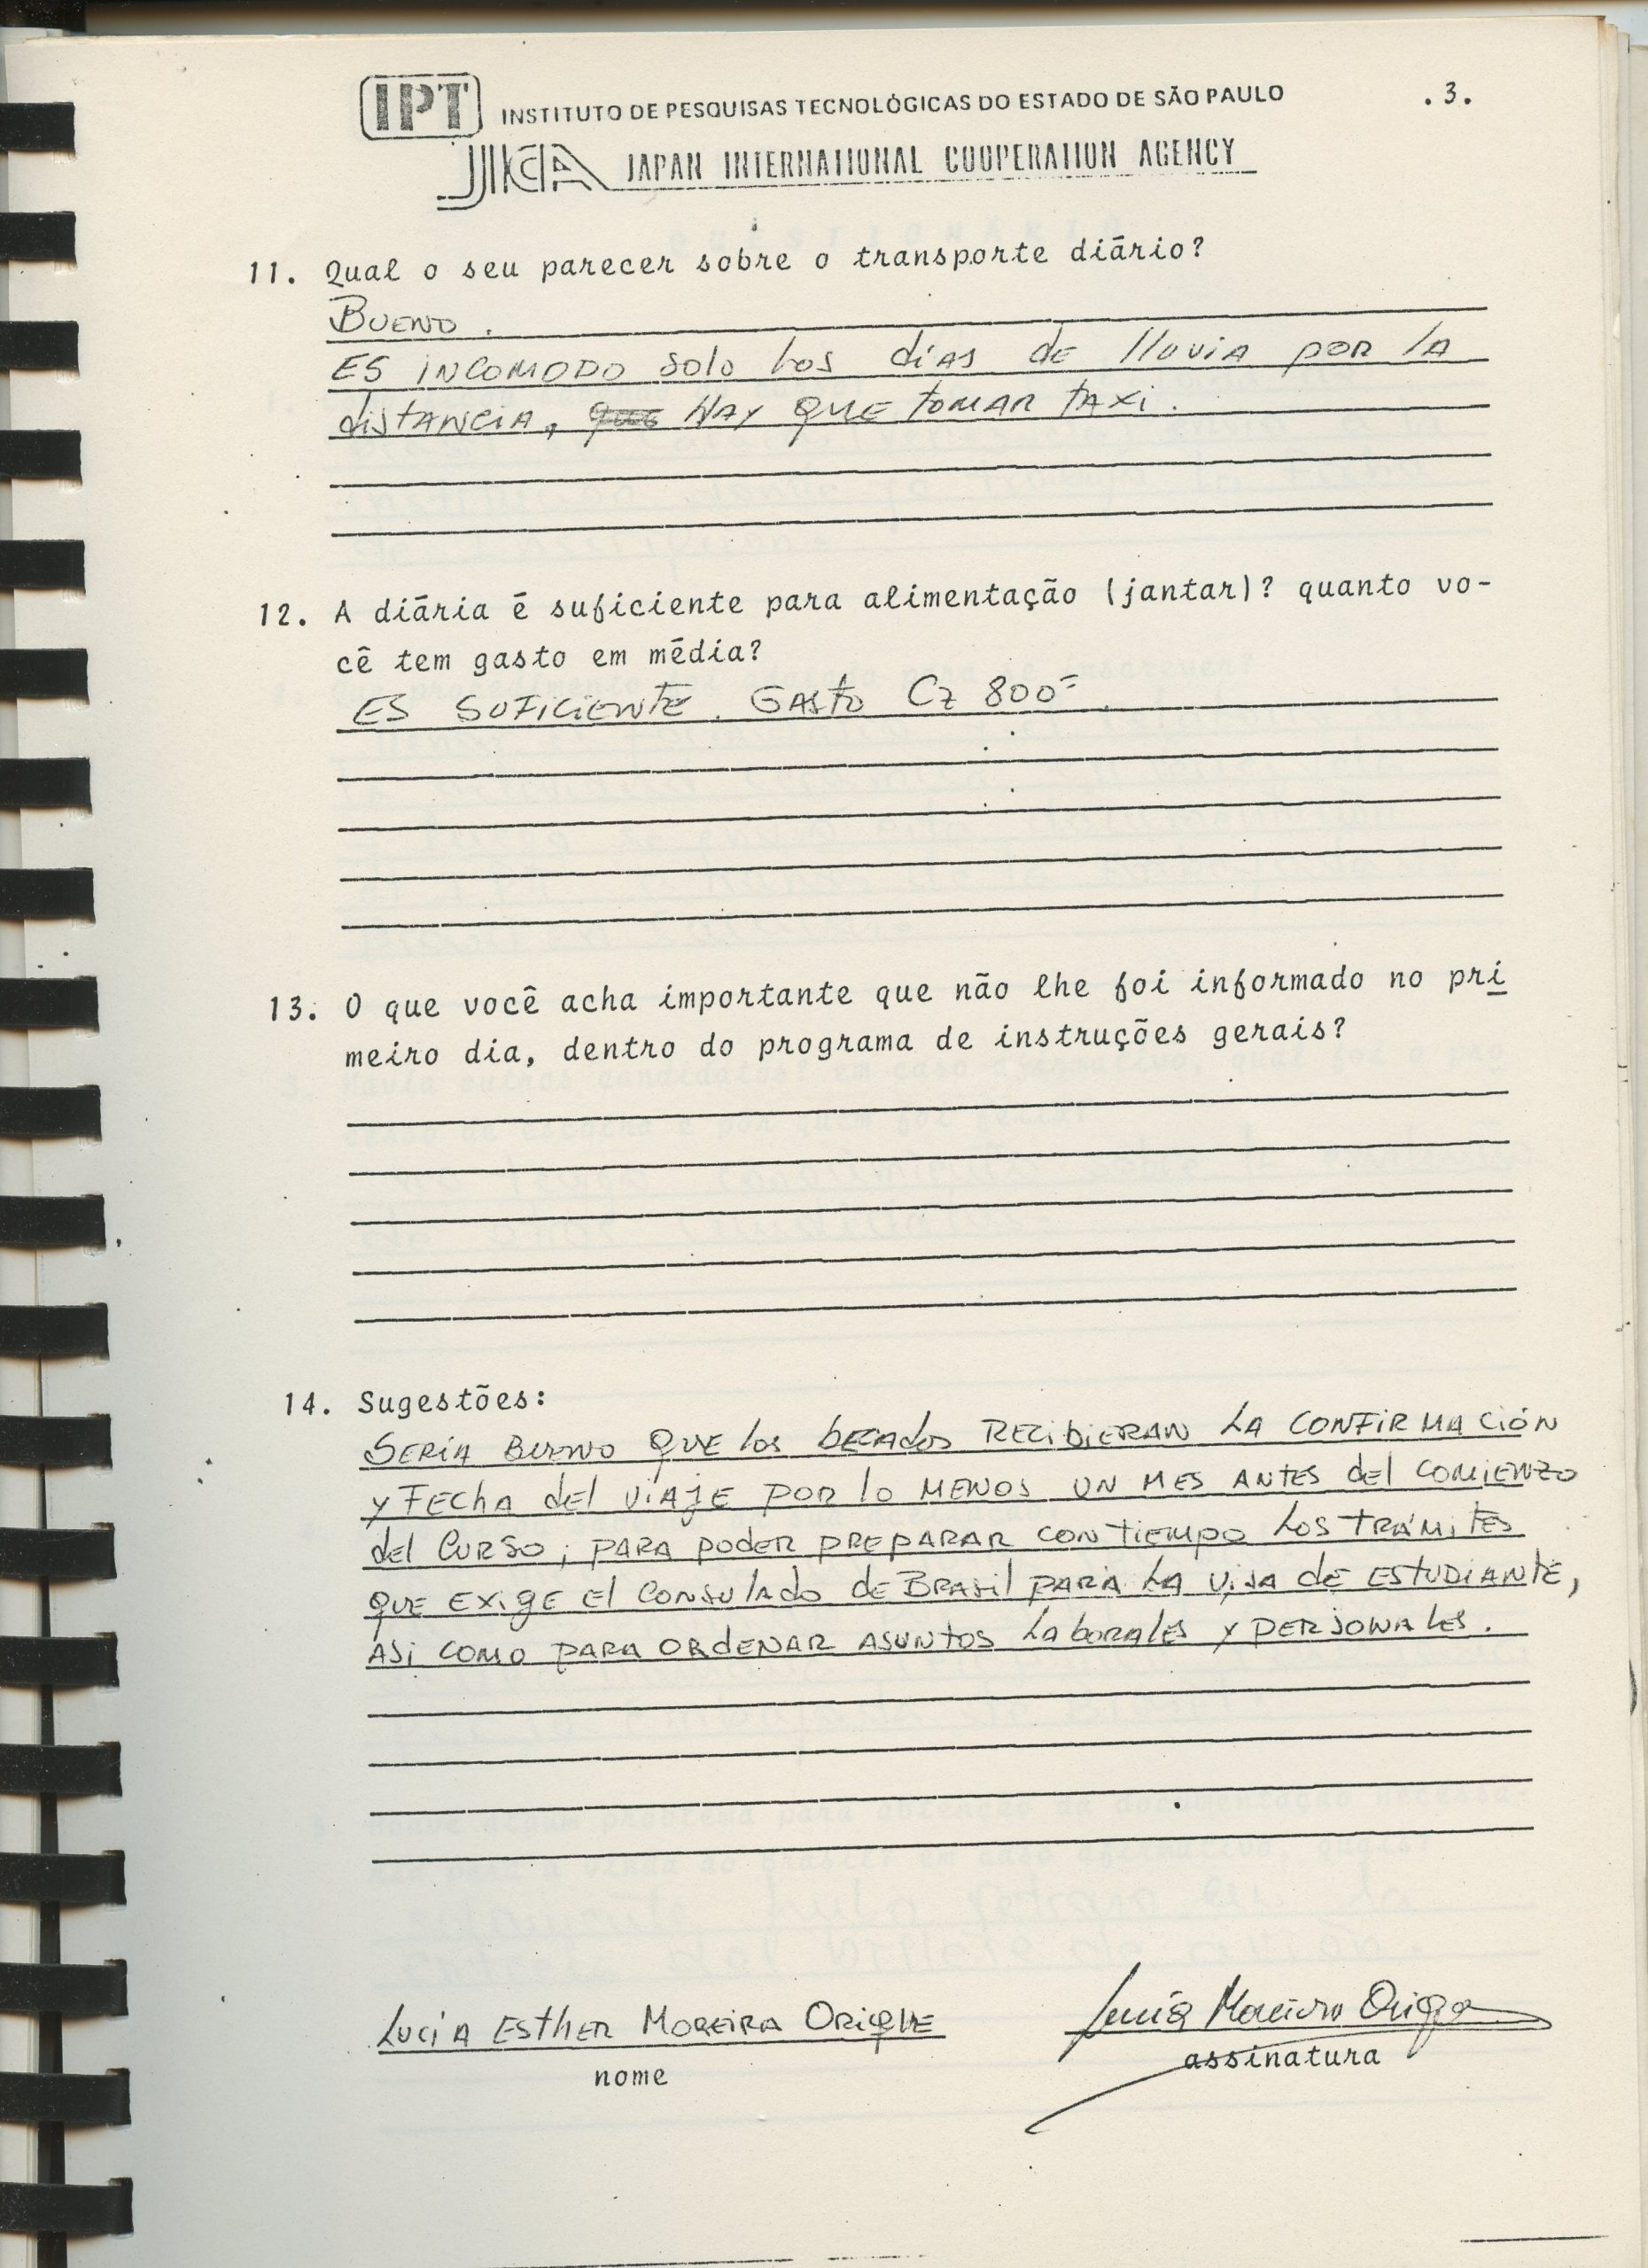 IPT INSTITUTO DE PESQUISAS TECNOLÓGICAS DO ESTADO DE SÃO PAULO .3.
JICA JAPAN INTERNATIONAL COOPERATION AGENCY
11. Qual o seu parecer sobre o transporte diário?
BUENO.
ES INCOMODO solo los días de lluvia por la
distancia, que HAY QUE tomar taxi.
12. A diária é suficiente para alimentação (jantar)? quanto vo-
cê tem gasto em média?
ES SUFICIENTE. GASTO Cz 800=.
13. O que você acha importante que não lhe foi informado no pri
meiro dia, dentro do programa de instruções gerais?
14. Sugestões:
SERÍA BUENO QUE los becados RECIBIERAN LA CONFIRMACIÓN
y FECHA del VIAJE POR lo MENOS UN MES ANTES del COMIENZO
del CURSO; PARA PODER PREPARAR CON TIEMPO LOS TRÁMITES
QUE EXIGE El CONSULADO de BRASIL PARA LA VISA de ESTUDIANTE,
ASI COMO PARA ORDENAR ASUNTOS LABORALES y PERSONALES.
LUCÍA ESTHER MOREIRA ORIQUE Lucía Moreira Orique
nome assinatura